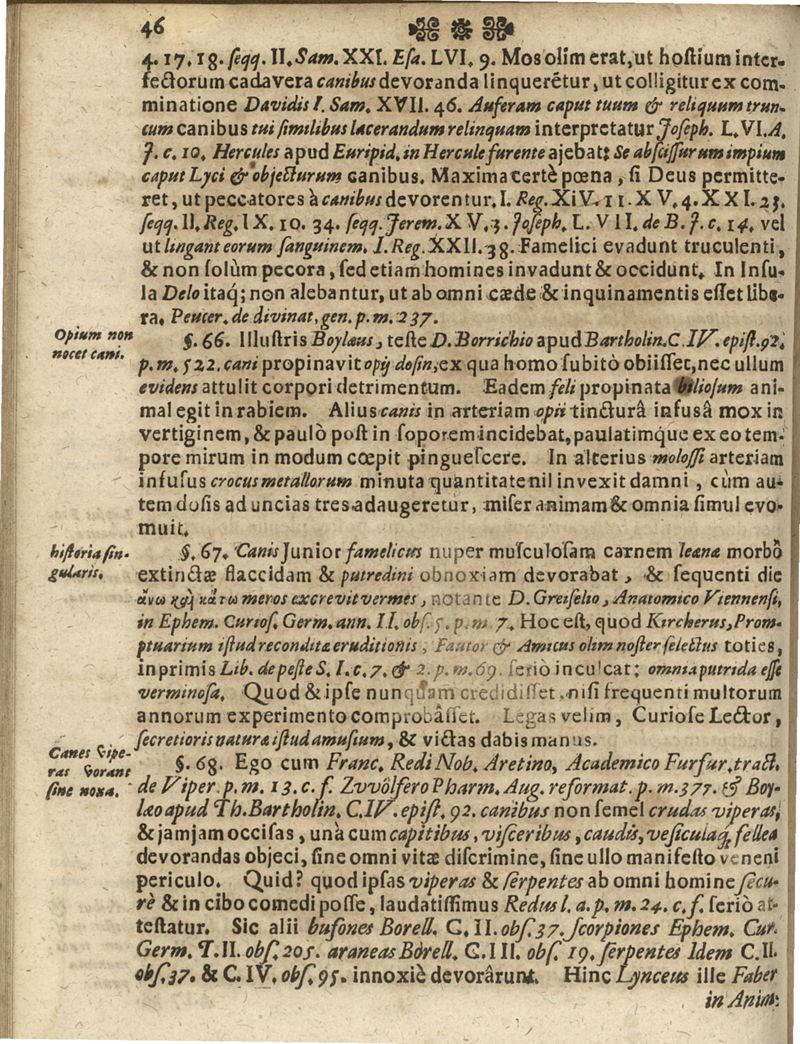 46
4. 17. 18. ſeqq. II. Sam. XXI. Eſa. LVI. 9. Mos olim erat, ut hoſtium inter-
fectorum cadavera canibus devoranda linquerētur, ut colligitur ex com-
minatione Davidis I. Sam. XVII. 46. Auferam caput tuum & reliquum trun-
cum canibus tui ſimilibus lacerandum relinquam interpretatur Joſeph. L. VI. A.
J. c. 10. Hercules apud Euripid. in Hercule furente ajebat: Se abſciſſurum impium
caput Lyci & objecturum canibus. Maxima certè pœna, ſi Deus permitte-
ret, ut peccatores à canibus devorentur. I. Reg. XIV. 11. XV. 4. XXI. 23.
ſeqq. II. Reg. IX. 10. 34. ſeqq. Jerem. XV. 3. Joſeph. L. VII. de B. J. c. 14. vel
ut lingant eorum ſanguinem. I. Reg. XXII. 38. Famelici evadunt truculenti,
& non ſolùm pecora, ſed etiam homines invadunt & occidunt. In Inſu-
la Delo itaq; non alebantur, ut ab omni cæde & inquinamentis eſſet libe-
ra. Peucer. de divinat. gen. p. m. 237.
Opium non
nocet cani.
§. 66. Illuſtris Boylæus, teſte D. Borrichio apud Bartholin. C. IV. epiſt. 92.
p. m. 522. cani propinavit opij doſin, ex qua homo ſubitò obiiſſet, nec ullum
evidens attulit corpori detrimentum. Eadem feli propinata bilioſum ani-
mal egit in rabiem. Alius canis in arteriam opii tincturâ infuſâ mox in
vertiginem, & paulò poſt in ſoporem incidebat, paulatimq́ue ex eo tem-
pore mirum in modum cœpit pingueſcere. In alterius moloſſi arteriam
infuſus crocus metallorum minuta quantitate nil invexit damni, cùm au-
tem doſis ad uncias tres adaugeretur, miſer animam & omnia ſimul evo-
muit.
hiſtoria ſin-
gularis.
§. 67. Canis Junior famelicus nuper muſculoſam carnem leænæ morbô
extinctæ flaccidam & putredini obnoxiam devorabat, & ſequenti die
ἄνω καὶ κάτω meros excrevit vermes, notante D. Greiſelio, Anatomico Viennenſi,
in Ephem. Curioſ. Germ. ann. II. obſ. 5. p. m. 7. Hoc eſt, quod Kircherus, Prom-
ptuarium iſtud reconditæ eruditionis, Fautor & Amicus olim noſter ſelectus toties,
inprimis Lib. de peſte S. I. c. 7. & 2. p. m. 69. ſeriò inculcat: omnia putrida eſſe
verminoſa. Quod & ipſe nunquam credidiſſet, niſi frequenti multorum
annorum experimento comprobâſſet. Legas velim, Curioſe Lector,
ſecretioris naturæ iſtud amuſium, & victas dabis manus.
Canes Vipe-
ras vorant
ſine noxa.
§. 68. Ego cum Franc. Redi Nob. Aretino, Academico Furfur. tract.
de Viper. p. m. 13. c. f. Zvvôlfero Pharm. Aug. reformat. p. m. 377. & Boy-
læo apud Th. Bartholin. C. IV. epiſt. 92. canibus non ſemel crudas viperas,
& jamjam occiſas, unà cum capitibus, viſceribus, caudis, veſiculaq́; fellea
devorandas objeci, ſine omni vitæ diſcrimine, ſine ullo manifeſto veneni
periculo. Quid? quod ipſas viperas & ſerpentes ab omni homine ſecu-
rè & in cibo comedi poſſe, laudatiſſimus Redus l. a. p. m. 24. c. f. ſeriò at-
teſtatur. Sic alii bufones Borell. C. II. obſ. 37. ſcorpiones Ephem. Cur.
Germ. T. II. obſ. 205. araneas Borell. C. III. obſ. 19. ſerpentes Idem C. II.
obſ. 37. & C. IV. obſ. 95. innoxiè devorârunt. Hinc Lynceus ille Faber
in Anim.